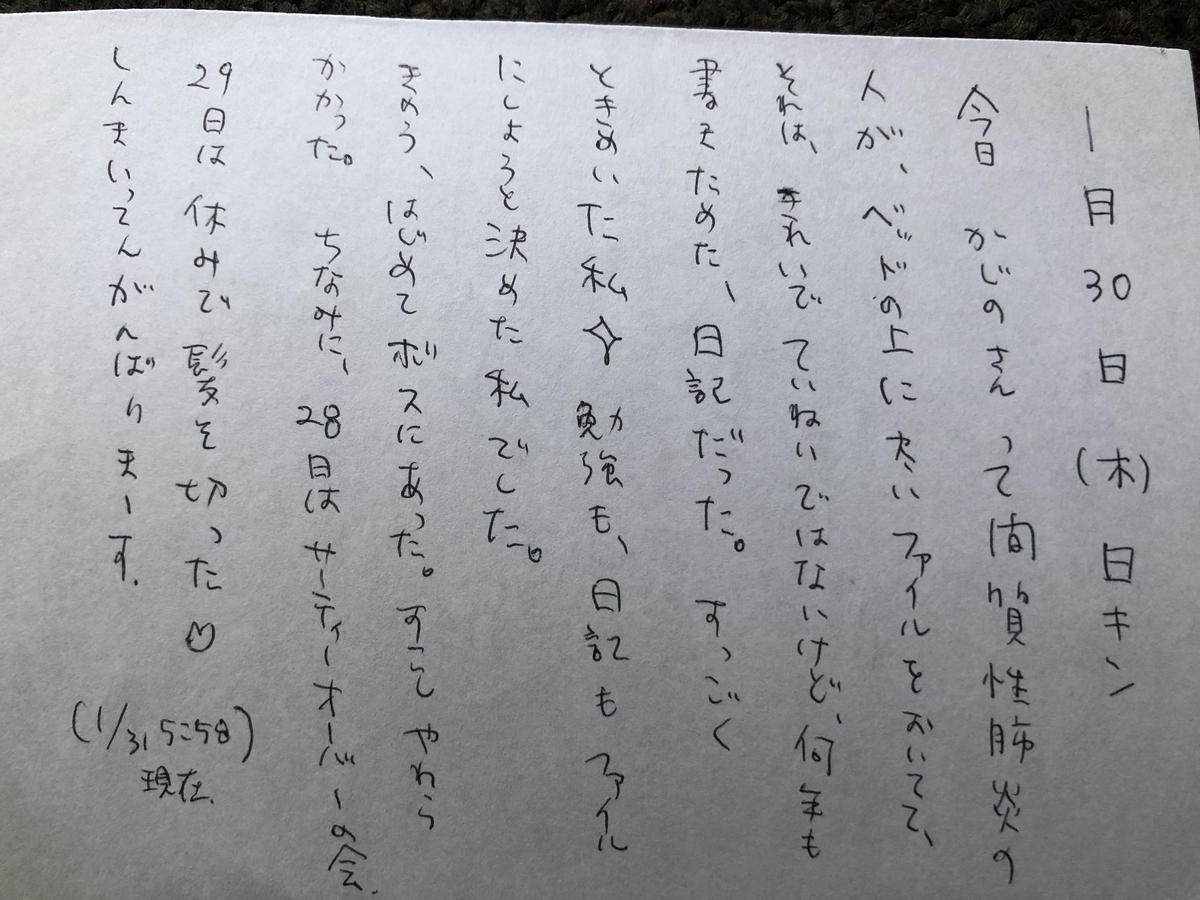 1月30日(木)日キン
今日 かじのさんって間質性肺炎の
人が、ベッドの上に太いファイルをおいてて、
それは、きれいでていねいではないけど、何年も
書きためた、日記だった。すっごく
ときめいた私✧勉強も、日記もファイル
にしようと決めた私でした。
きのう、はじめてボスにあった。すこしやわら
かかった。ちなみに、28日はサーティーオーバーの会.
29日は休みで髪を切った♡
しんまいってんがんばりまーす.
(1/31, 5:58)
現在.